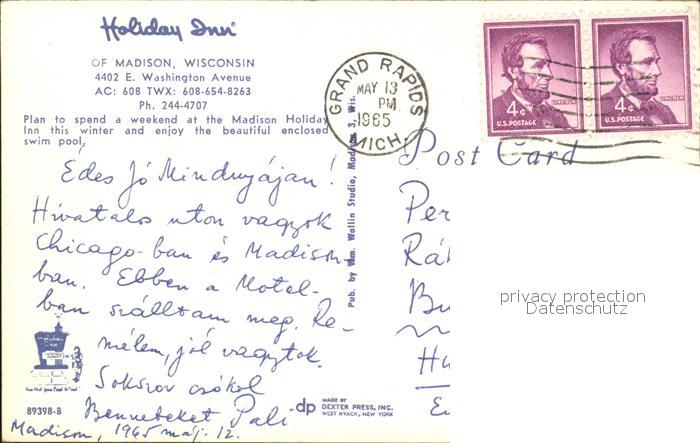 Holiday Inn
OF MADISON, WISCONSIN
4402 E. Washington Avenue
AC: 608 TWX: 608-654-8263
Ph. 244-4707
Plan to spend a weekend at the Madison Holiday
Inn this winter and enjoy the beautiful enclosed
swim pool,
Édes Jó Mindnyájan!
Hivatalos uton vagyok
Chicago-ban és Madison-
ban. Ebben a Motel-
ban szálltam meg. Re-
mélem, jól vagytok.
Sokszor csókol
Bennebeket Pali
89398-B
Madison, 1965 máj. 12.
Pub. by Wm. Wollin Studio, Madison 3, Wis.
dp MADE BY
DEXTER PRESS, INC.
WEST NYACK, NEW YORK
GRAND RAPIDS
MAY 13
PM
1965
MICH.
4¢ LINCOLN
U.S. POSTAGE
4¢ LINCOLN
U.S. POSTAGE
Post Card
Per
Rá
Bu
Hu
privacy protection
Datenschutz